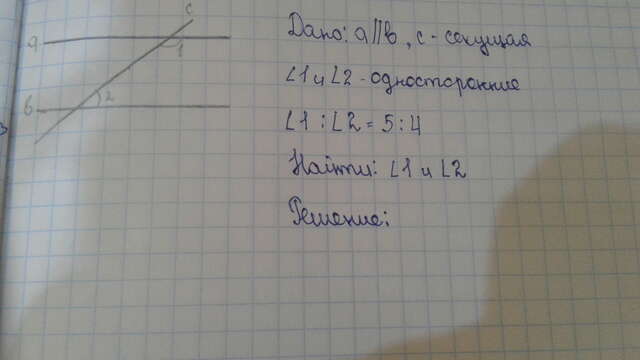 a
b
c
1
2
Дано: a||b, c - секущая
∠1 и ∠2 - односторонние
∠1 : ∠2 = 5 : 4
Найти: ∠1 и ∠2
Решение: